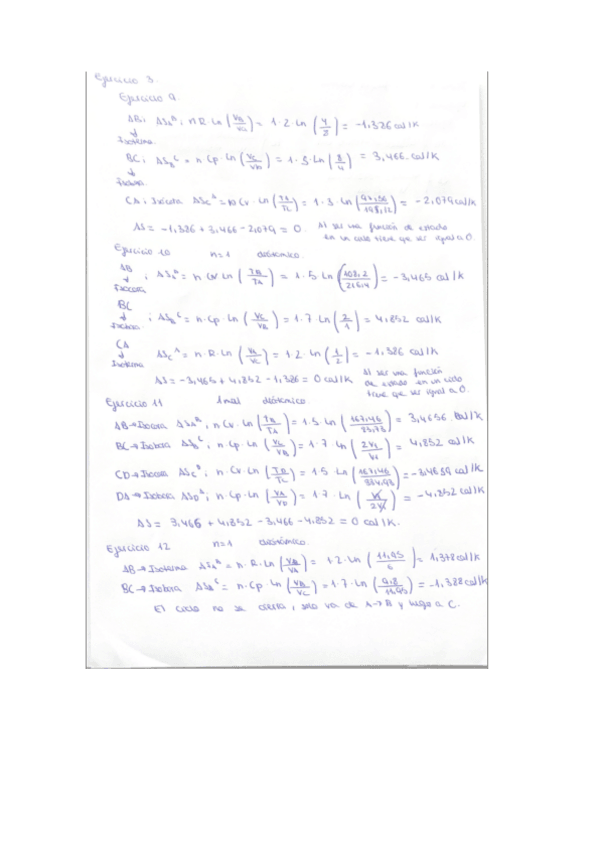 Ejercicio 3.
Ejercicio 9
AB: ΔS_A^B: n R Ln (V_B/V_A) = 1·2·Ln (4/8) = -1,386 cal/K
↓
Isoterma
BC: ΔS_B^C = n Cp · Ln (V_C/V_B) = 1·5·Ln (8/4) = 3,466 cal/K
↓
Isobara
CA: Isócora ΔS_C^A = n Cv · Ln (T_A/T_C) = 1·3·Ln (97,56/198,12) = -2,079 cal/K
ΔS = -1,386 + 3,466 - 2,079 = 0. Al ser una función de estado
en un ciclo tiene que ser igual a 0.
Ejercicio 10 n=1 diatómico
AB : ΔS_A^B = n Cv Ln (T_B/T_A) = 1·5 Ln (108,2/216,4) = -3,465 cal/K
↓
Isócora
BC
↓ : ΔS_B^C = n·Cp·Ln (V_C/V_B) = 1·7·Ln (2/1) = 4,852 cal/K
Isobara
CA
↓ ΔS_C^A = n·R·Ln (V_A/V_C) = 1·2·Ln (1/2) = -1,386 cal/K
Isoterma
Al ser una función
ΔS = -3,465 + 4,852 - 1,386 = 0 cal/K de estado en un ciclo
tiene que ser igual a 0.
Ejercicio 11 1 mol diatómico
AB → Isócora ΔS_A^B: n Cv·Ln (T_B/T_A) = 1·5·Ln (167,46/83,73) = 3,4656 cal/K
BC → Isobara ΔS_B^C: n·Cp·Ln (V_C/V_B) = 1·7·Ln (2V_1/V_1) = 4,852 cal/K
CD → Isócora ΔS_C^D: n·Cv·Ln (T_D/T_C) = 1·5·Ln (167,46/334,93) = -3,4659 cal/K
DA → Isobara ΔS_D^A: n·Cp·Ln (V_A/V_D) = 1·7·Ln (V_1/2V_1) = -4,852 cal/K
ΔS = 3,466 + 4,852 - 3,466 - 4,852 = 0 cal/K.
Ejercicio 12 n=1 diatómico
AB → Isoterma ΔS_A^B = n·R·Ln (V_B/V_A) = 1·2·Ln (11,95/6) = 1,378 cal/K
BC → Isobara ΔS_B^C = n·Cp·Ln (V_B/V_C) = 1·7·Ln (9,8/11,95) = -1,388 cal/K
El ciclo no se cierra, solo va de A→B y luego a C.